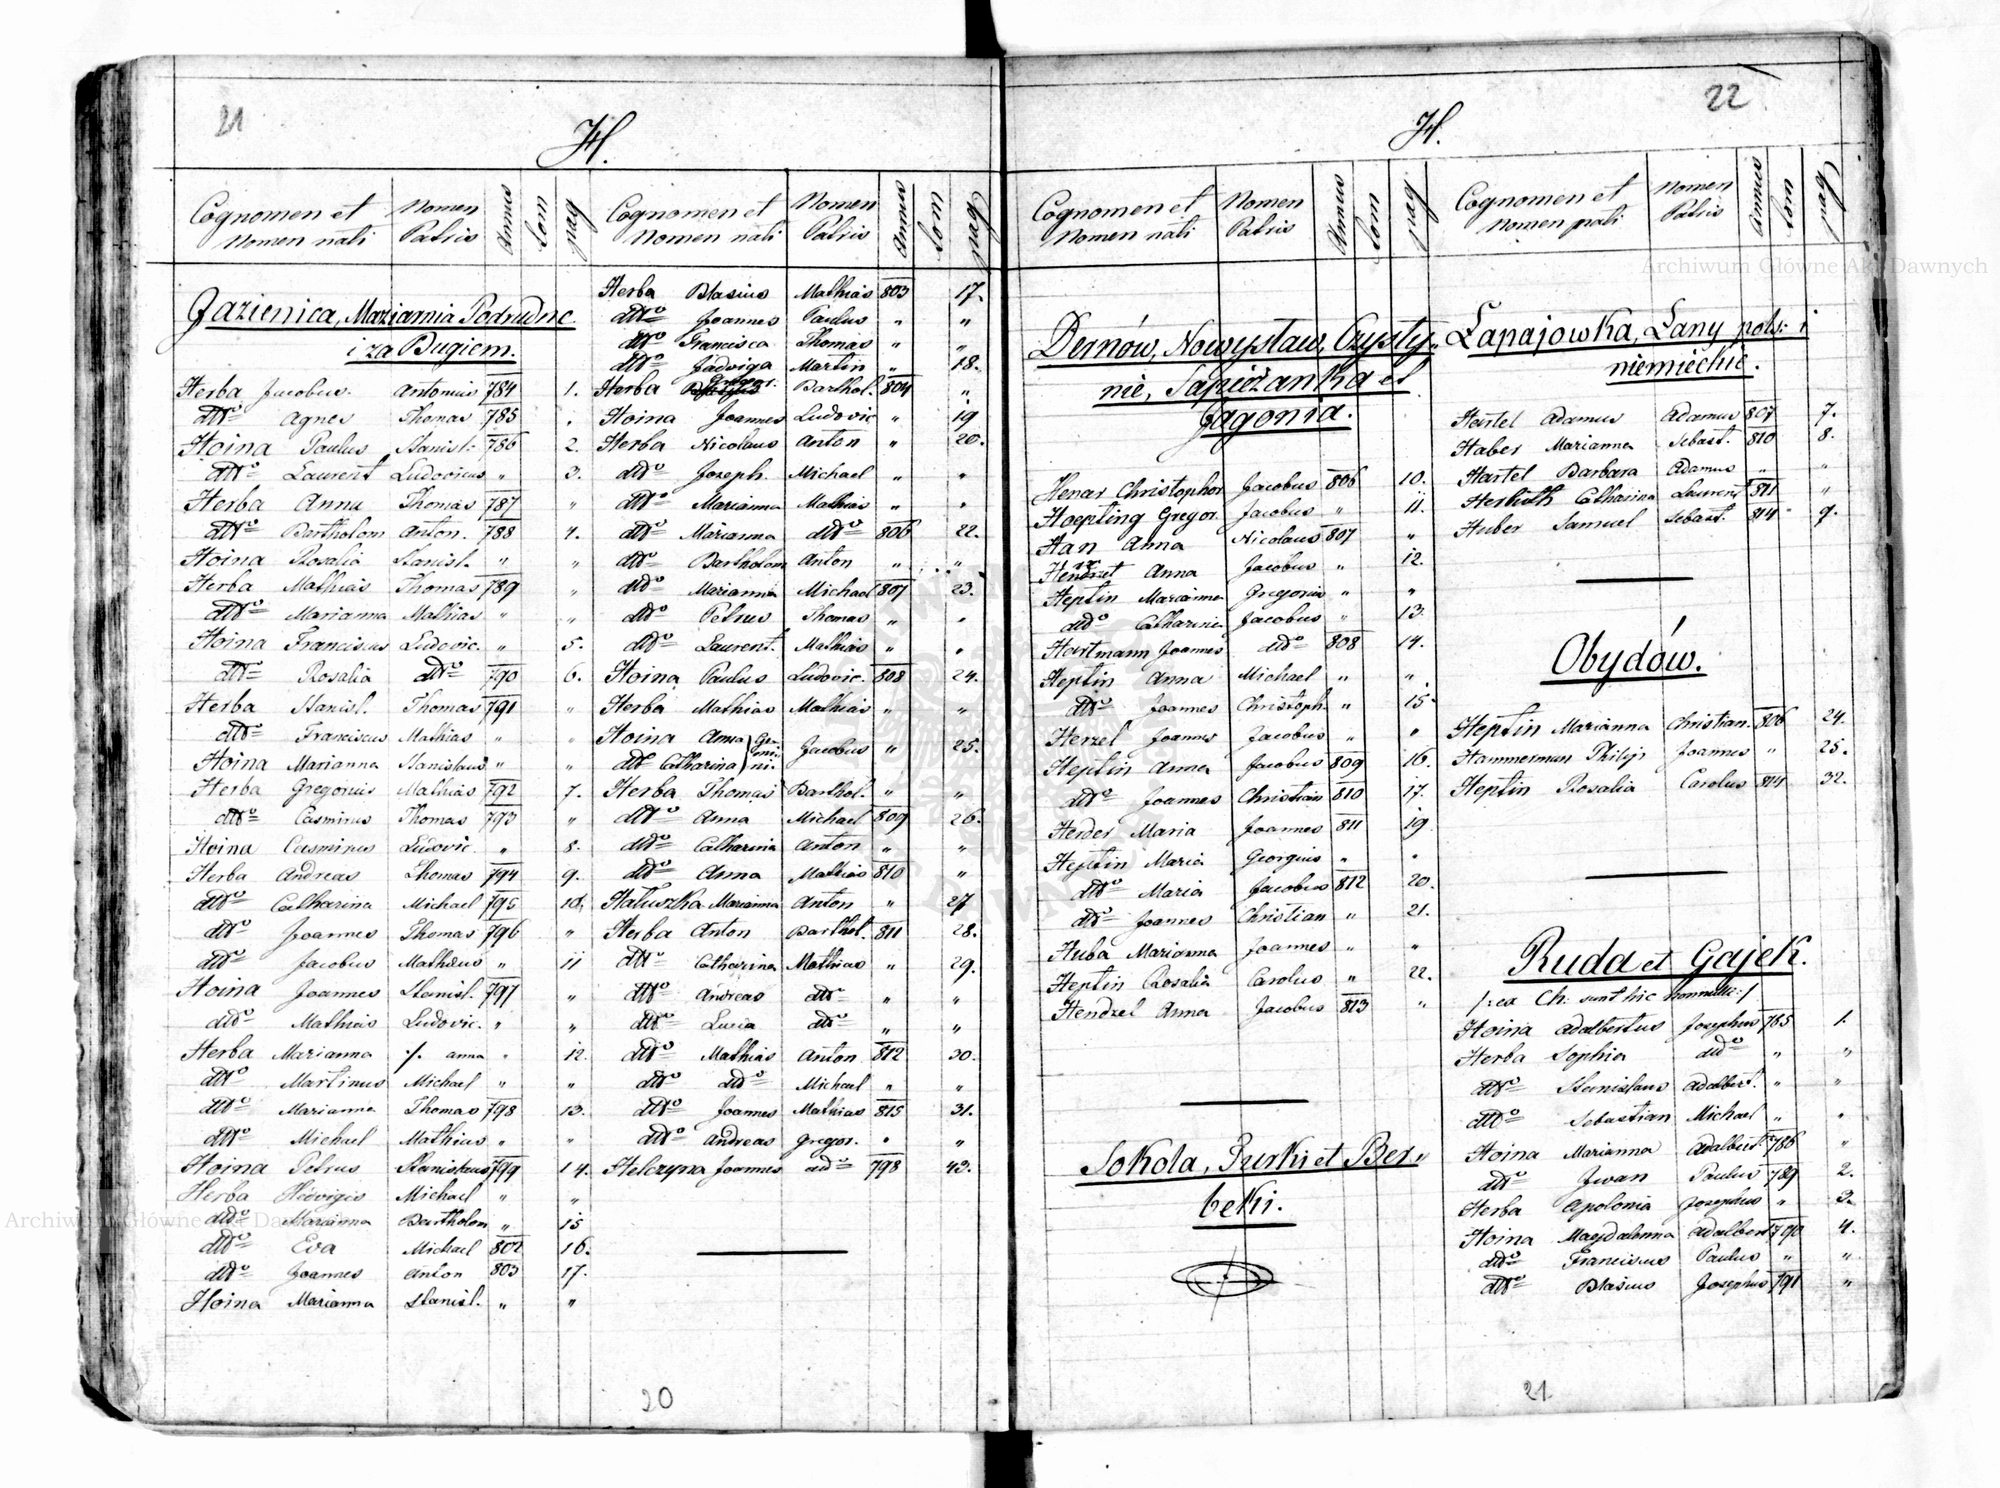 21
H.
Cognomen et Nomen nati
Nomen Patris
Annus
tom
pag
Jazienica, Mariamia Podrudne
i za Bugiem.
Herba Jacobus Antonius 784 1.
dtto Agnes Thomas 785 "
Hoina Paulus Stanisl. 786 2.
dtto Laurent Ludovicus " 3.
Herba Anna Thomas 787 "
dtto Bartholom Anton. 788 4.
Hoina Rosalia Stanisl. " "
Herba Mathias Thomas 789 "
dtto Marianna Mathias " "
Hoina Franciscus Ludovic. " 5.
dtto Rosalia dtto 790 6.
Herba Stanisl. Thomas 791 "
dtto Franciscus Mathias " "
Hoina Marianna Stanislaus " "
Herba Gregorius Mathias 792 7.
dtto Casmirus Thomas 793 "
Hoina Casmirus Ludovic " 8.
Herba Andreas Thomas 794 9.
dtto Catharina Michael 795 10.
dtto Joannes Thomas 796 "
dtto Jacobus Matheus " 11
Hoina Joannes Stanisl. 797 "
dtto Mathias Ludovic. " "
Herba Marianna /. anna " 12.
dtto Martinus Michael " "
dtto Marianna Thomas 798 13.
dtto Michael Mathias " "
Hoina Petrus Stanislaus 799 14.
Herba Hedvigis Michael " "
dtto Marianna Bartholom " 15
dtto Eva Michael 802 16.
dtto Joannes Anton 803 17.
Hoina Marianna Stanisl. " "
Cognomen et Nomen nati
Nomen Patris
Annus
tom
pag
Herba Blasius Mathias 803 17.
dtto Joannes Paulus " "
dtto Francisca Thomas " "
dtto Jadviga Martin " 18.
Herba Gregor. Barthol. 804 "
Hoina Joannes Ludovic " 19
Herba Nicolaus Anton " 20.
dtto Joseph. Michael " "
dtto Marianna Mathias " "
dtto Marianna dtto 806 22.
dtto Bartholom Anton " "
dtto Marianna Michael 807 23.
dtto Petrus Thomas " "
dtto Laurent. Mathias " "
Hoina Paulus Ludovic. 808 24.
Herba Mathias Mathias " "
Hoina Anna Ge-
dtto Catharina mi-ni. Jacobus " 25.
Herba Thomas Barthol. " "
dtto Anna Michael 809 26.
dtto Catharina Anton " "
dtto Anna Mathias 810 "
Hatuszka Marianna Anton " 27
Herba Anton Barthol. 811 28.
dtto Catharina Mathias " 29.
dtto Andreas dtto " "
dtto Lucia dtto " "
dtto Mathias Anton 812 30.
dtto dtto Michael " "
dtto Joannes Mathias 815 31.
dtto Andreas Gregor. " "
Helczyna Joannes 798 43.
20
22
H.
Cognomen et Nomen nati
Nomen Patris
Annus
tom
pag
Dernów, Nowystaw, Czysty-
nie, Sapieżanka et
Jagonia.
Henar Christophor Jacobus 806 10.
Hoepting Gregor Jacobus " 11.
Han Anna Nicolaus 807 "
Anna Jacobus " 12.
Heptin Marianna Gregorius " "
dtto Catharina Jacobus " 13.
Hartmann Joannes dtto 808 14.
Heptin Anna Michael " "
dtto Joannes Christoph. " 15.
Herzel Joannes Jacobus " "
Heptin Anna Jacobus 809 16.
dtto Joannes Christian 810 17.
Herder Maria Joannes 811 19
Heptin Maria Georgius " "
dtto Maria Jacobus 812 20.
dtto Joannes Christian " 21.
Huba Marianna Joannes " "
Heptin Rosalia Carolus " 22.
Hendzel Anna Jacobus 813 "
Sokola, Purki et Ber-
beki.
Cognomen et Nomen nati
Nomen Patris
Annus
tom
pag
Łapajowka, Łany pols: i
niemieckie.
Hartel Adamus Adamus 807 7.
Haber Marianna Sebast. 810 8.
Hartel Barbara Adamus " "
Herbuth Catharina Laurent 811 "
Huber Samuel Sebast. 814 9.
Obydów.
Heptin Marianna Christian. 806 24.
Hammerman Philip Joannes " 25.
Heptin Rosalia Carolus 814 32.
Ruda et Gajek.
/: ex Ch: sunt hic nonnulli :/
Hoina Adalbertus Josephus 785 1.
Herba Sophia dtto " "
dtto Stanislaus Adalbert. " "
dtto Sebastian Michael " "
Hoina Marianna Adalbert. 786 "
dtto Iwan Paulus 789 2.
Herba Apolonia Josephus " 3.
Hoina Magdalenna Adalbert 790 4.
dtto Franciscus Paulus " "
dtto Blasius Josephus 791 "
21
Archiwum Główne Akt Dawnych
Archiwum Główne Akt Dawnych